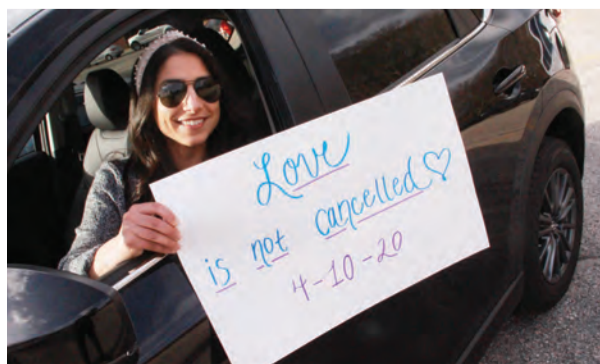 Love
is not cancelled♡
4-10-20